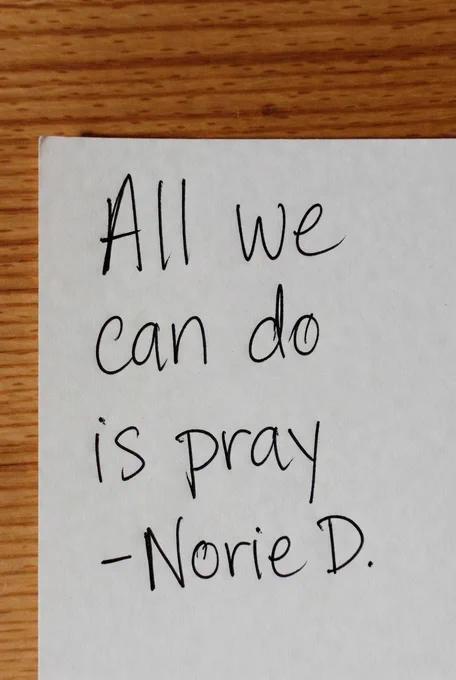 All we
can do
is pray
-Norie D.